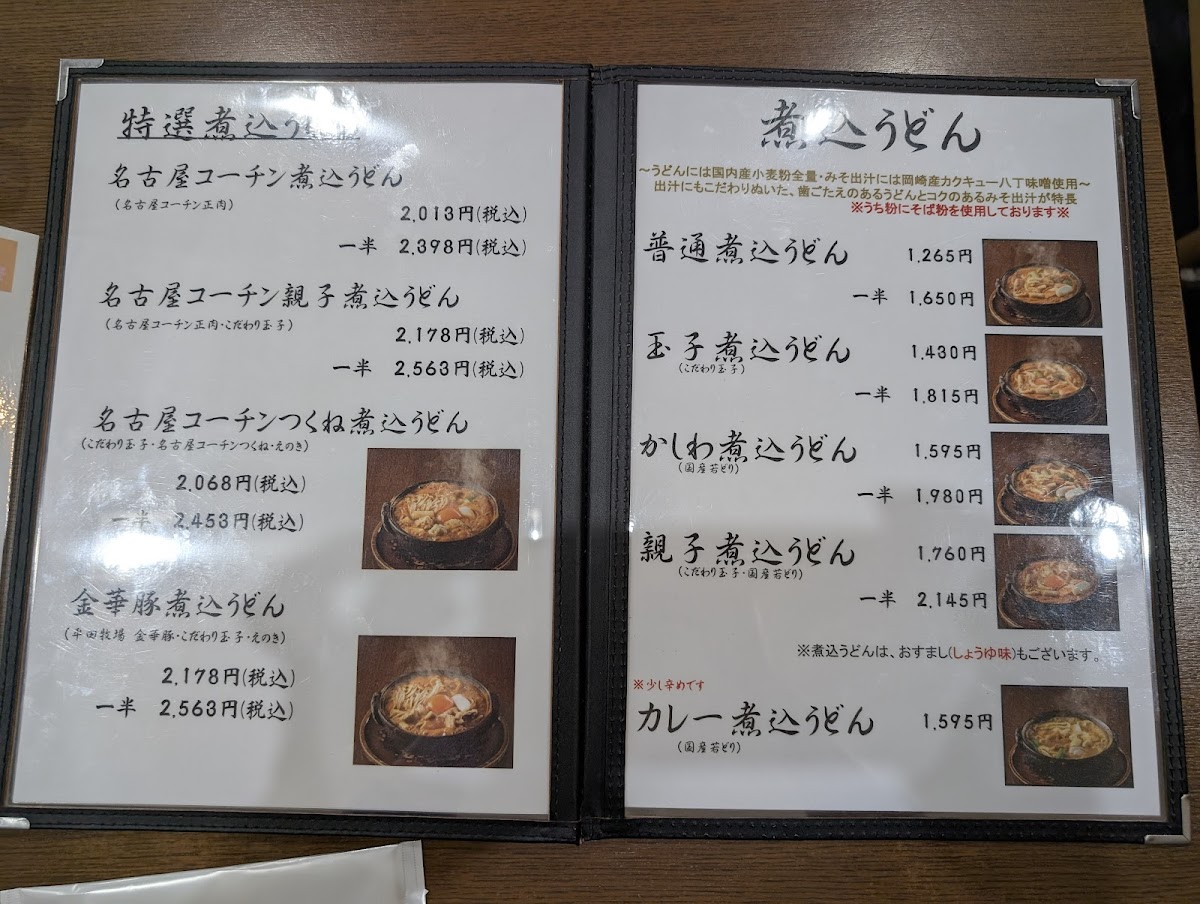 特選煮込う
名古屋コーチン煮込うどん
(名古屋コーチン正肉)
2,013円(税込)
一半 2,398円(税込)
名古屋コーチン親子煮込うどん
(名古屋コーチン正肉・こだわり玉子)
2,178円(税込)
一半 2,563円(税込)
名古屋コーチンつくね煮込うどん
(こだわり玉子・名古屋コーチンつくね・えのき)
2,068円(税込)
一半 2,453円(税込)
金華豚煮込うどん
(平田牧場 金華豚・こだわり玉子・えのき)
2,178円(税込)
一半 2,563円(税込)
煮込うどん
～うどんには国内産小麦粉全量・みそ出汁には岡崎産カクキュー八丁味噌使用～
出汁にもこだわりぬいた、歯ごたえのあるうどんとコクのあるみそ出汁が特長
※うち粉にそば粉を使用しております※
普通煮込うどん 1,265円
一半 1,650円
玉子煮込うどん 1,430円
(こだわり玉子)
一半 1,815円
かしわ煮込うどん 1,595円
(国産若どり)
一半 1,980円
親子煮込うどん 1,760円
(こだわり玉子・国産若どり)
一半 2,145円
※煮込うどんは、おすまし(しょうゆ味)もございます。
※少し辛めです
カレー煮込うどん 1,595円
(国産若どり)